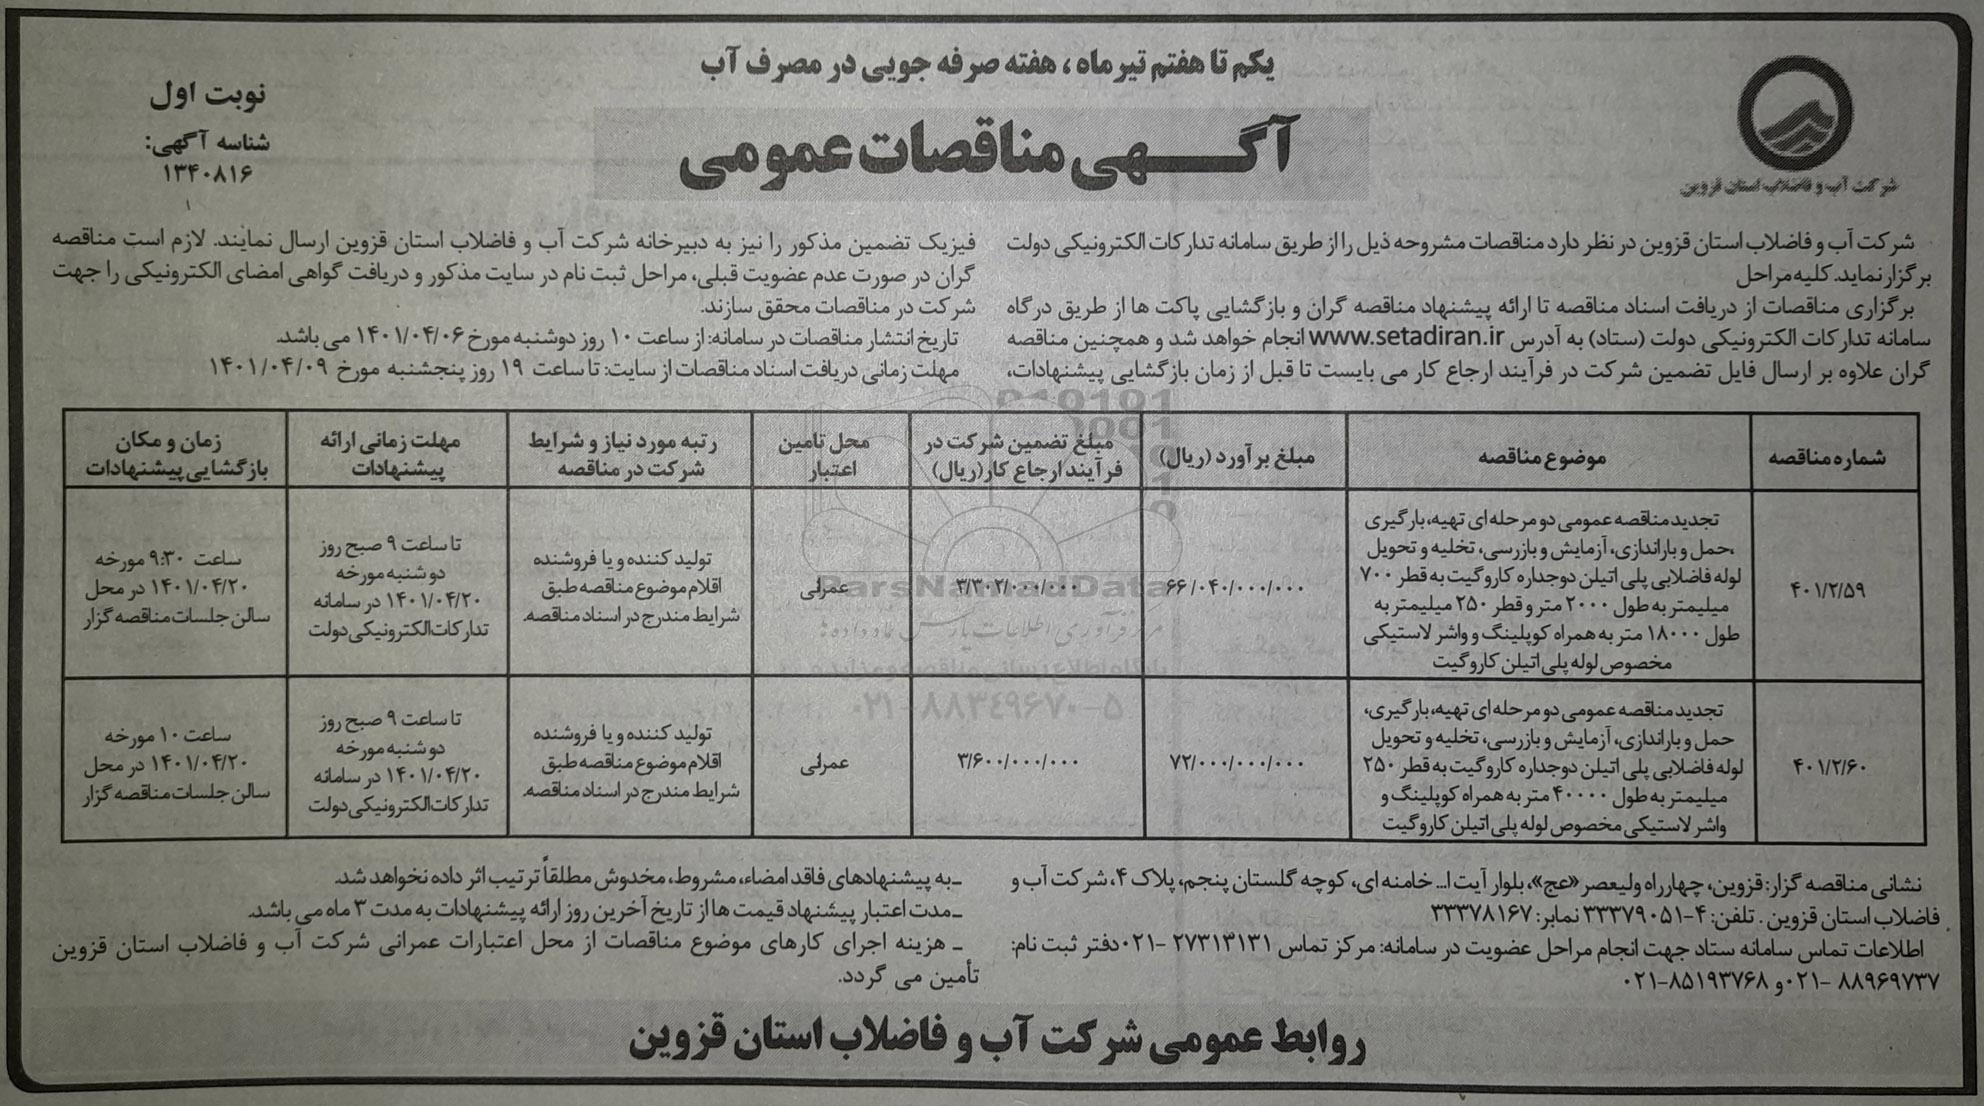 یکم تا هفتم تیر ماه ، هفته صرفه جویی در مصرف آب
نوبت اول
شناسه آگهی:
۱۳۴۰۸۱۶
آگهی مناقصات عمومی
شرکت آب و فاضلاب استان قزوین
شرکت آب و فاضلاب استان قزوین در نظر دارد مناقصات مشروحه ذیل را از طریق سامانه تدارکات الکترونیکی دولت
برگزار نماید. کلیه مراحل
برگزاری مناقصات از دریافت اسناد مناقصه تا ارائه پیشنهاد مناقصه گران و بازگشایی پاکت ها از طریق درگاه
سامانه تدارکات الکترونیکی دولت (ستاد) به آدرس www.setadiran.ir انجام خواهد شد و همچنین مناقصه
گران علاوه بر ارسال فایل تضمین شرکت در فرآیند ارجاع کار می بایست تا قبل از زمان بازگشایی پیشنهادات،
فیزیک تضمین مذکور را نیز به دبیرخانه شرکت آب و فاضلاب استان قزوین ارسال نمایند. لازم است مناقصه
گران در صورت عدم عضویت قبلی، مراحل ثبت نام در سایت مذکور و دریافت گواهی امضای الکترونیکی را جهت
شرکت در مناقصات محقق سازند.
تاریخ انتشار مناقصات در سامانه: از ساعت ۱۰ روز دوشنبه مورخ ۱۴۰۱/۰۴/۰۶ می باشد.
مهلت زمانی دریافت اسناد مناقصات از سایت: تا ساعت ۱۹ روز پنجشنبه مورخ ۱۴۰۱/۰۴/۰۹
شماره مناقصه
موضوع مناقصه
مبلغ برآورد (ریال)
مبلغ تضمین شرکت در
فرآیند ارجاع کار(ریال)
محل تامین
اعتبار
رتبه مورد نیاز و شرایط
شرکت در مناقصه
مهلت زمانی ارائه
پیشنهادات
زمان و مکان
بازگشایی پیشنهادات
۴۰۱/۲/۵۹
تجدید مناقصه عمومی دو مرحله ای تهیه، بارگیری
،حمل و باراندازی، آزمایش و بازرسی، تخلیه و تحویل
لوله فاضلابی پلی اتیلن دوجداره کاروگیت به قطر ۷۰۰
میلیمتر به طول ۲۰۰۰ متر و قطر ۲۵۰ میلیمتر به
طول ۱۸۰۰۰ متر به همراه کوپلینگ و واشر لاستیکی
مخصوص لوله پلی اتیلن کاروگیت
۶۶/۰۴۰/۰۰۰/۰۰۰
۳/۳۰۲/۰۰۰/۰۰۰
عمرانی
تولید کننده و یا فروشنده
اقلام موضوع مناقصه طبق
شرایط مندرج در اسناد مناقصه.
تا ساعت ۹ صبح روز
دوشنبه مورخه
۱۴۰۱/۰۴/۲۰ در سامانه
تدارکات الکترونیکی دولت
ساعت ۹:۳۰ مورخه
۱۴۰۱/۰۴/۲۰ در محل
سالن جلسات مناقصه گزار
۴۰۱/۲/۶۰
تجدید مناقصه عمومی دو مرحله ای تهیه، بارگیری،
حمل و باراندازی، آزمایش و بازرسی، تخلیه و تحویل
لوله فاضلابی پلی اتیلن دوجداره کاروگیت به قطر ۲۵۰
میلیمتر به طول ۴۰۰۰۰ متر به همراه کوپلینگ و
واشر لاستیکی مخصوص لوله پلی اتیلن کاروگیت
۷۲/۰۰۰/۰۰۰/۰۰۰
۳/۶۰۰/۰۰۰/۰۰۰
عمرانی
تولید کننده و یا فروشنده
اقلام موضوع مناقصه طبق
شرایط مندرج در اسناد مناقصه.
تا ساعت ۹ صبح روز
دوشنبه مورخه
۱۴۰۱/۰۴/۲۰ در سامانه
تدارکات الکترونیکی دولت
ساعت ۱۰ مورخه
۱۴۰۱/۰۴/۲۰ در محل
سالن جلسات مناقصه گزار
ParsNamadData
مرکز فرآوری اطلاعات پارس نماد داده ها
پایگاه اطلاع رسانی مناقصه و مزایده
۰۲۱-۸۸۳۴۹۶۷۰-۵
نشانی مناقصه گزار: قزوین، چهارراه ولیعصر «عج»، بلوار آیت ا... خامنه ای، کوچه گلستان پنجم، پلاک ۴، شرکت آب و
فاضلاب استان قزوین . تلفن: ۴-۳۳۳۷۹۰۵۱ نمابر: ۳۳۳۷۸۱۶۷
اطلاعات تماس سامانه ستاد جهت انجام مراحل عضویت در سامانه: مرکز تماس ۲۷۳۱۳۱۳۱ -۰۲۱ دفتر ثبت نام:
۸۸۹۶۹۷۳۷ -۰۲۱ و ۸۵۱۹۳۷۶۸-۰۲۱
ـ به پیشنهادهای فاقد امضاء، مشروط، مخدوش مطلقاً ترتیب اثر داده نخواهد شد.
ـ مدت اعتبار پیشنهاد قیمت ها از تاریخ آخرین روز ارائه پیشنهادات به مدت ۳ ماه می باشد.
ـ هزینه اجرای کارهای موضوع مناقصات از محل اعتبارات عمرانی شرکت آب و فاضلاب استان قزوین
تأمین می گردد.
روابط عمومی شرکت آب و فاضلاب استان قزوین